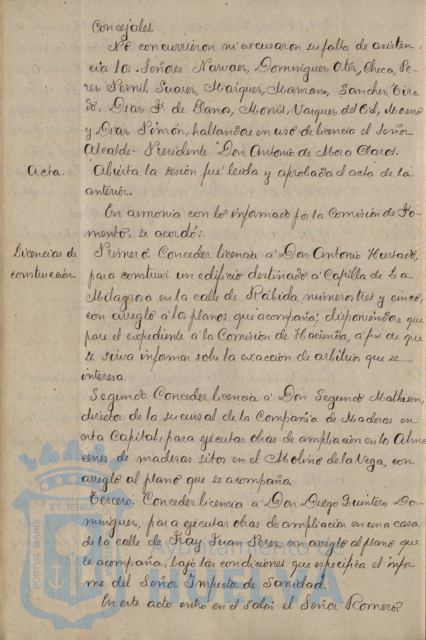 Concejales
No concurrieron ni excusaron su falta de asisten-
cia los Señores Narvaez, Dominguez Ortiz, Checa, Pe-
rez Pernil, Suarez, Marquez, Mamane, Sanchez, Tira-
do, Diaz F. de Llanos, Monis, Vazquez del Cid, Moreno
y Diaz Simón, hallandose en uso de licencia el Señor
Alcalde-Presidente Don Antonio de Mora Claros.
Acta. Abierta la sesión fué leida y aprobada el acta de la
anterior.
En armonia con lo informado por la Comisión de Fo-
mento, se acordó:
Licencias de Primero. Conceder licencia á Don Antonio Hurtado,
construcción. para construir un edificio destinado á Capilla de La
Milagrosa en la calle de Rábida, numeros tres y cinco,
con arreglo á los planos que acompaña; disponiendose que
pase el expediente á la Comision de Hacienda, á fin de que
se sirva informar sobre la exacción de arbitrio que se
interesa.
Segundo. Conceder licencia á Don Segundo
director de la sucursal de la Compañia de Maderas en
esta Capital, para ejecutar obras de ampliación en los Alma-
cenes de maderas sitos en el Molino de la Vega, con
arreglo al plano que se acompaña.
Tercero. Conceder licencia á Don Diego Quintero Do-
minguez, para ejecutar obras de ampliación en una casa
de la calle de Fray Juan Perez con arreglo al plano que
se acompaña, bajo las condiciones que especifica el infor-
me del Señor Inspector de Sanidad.
En este acto entró en el Salón el Señor Romero
PORTUS MARIS ET TERRE
Ayuntamiento de
HUELVA